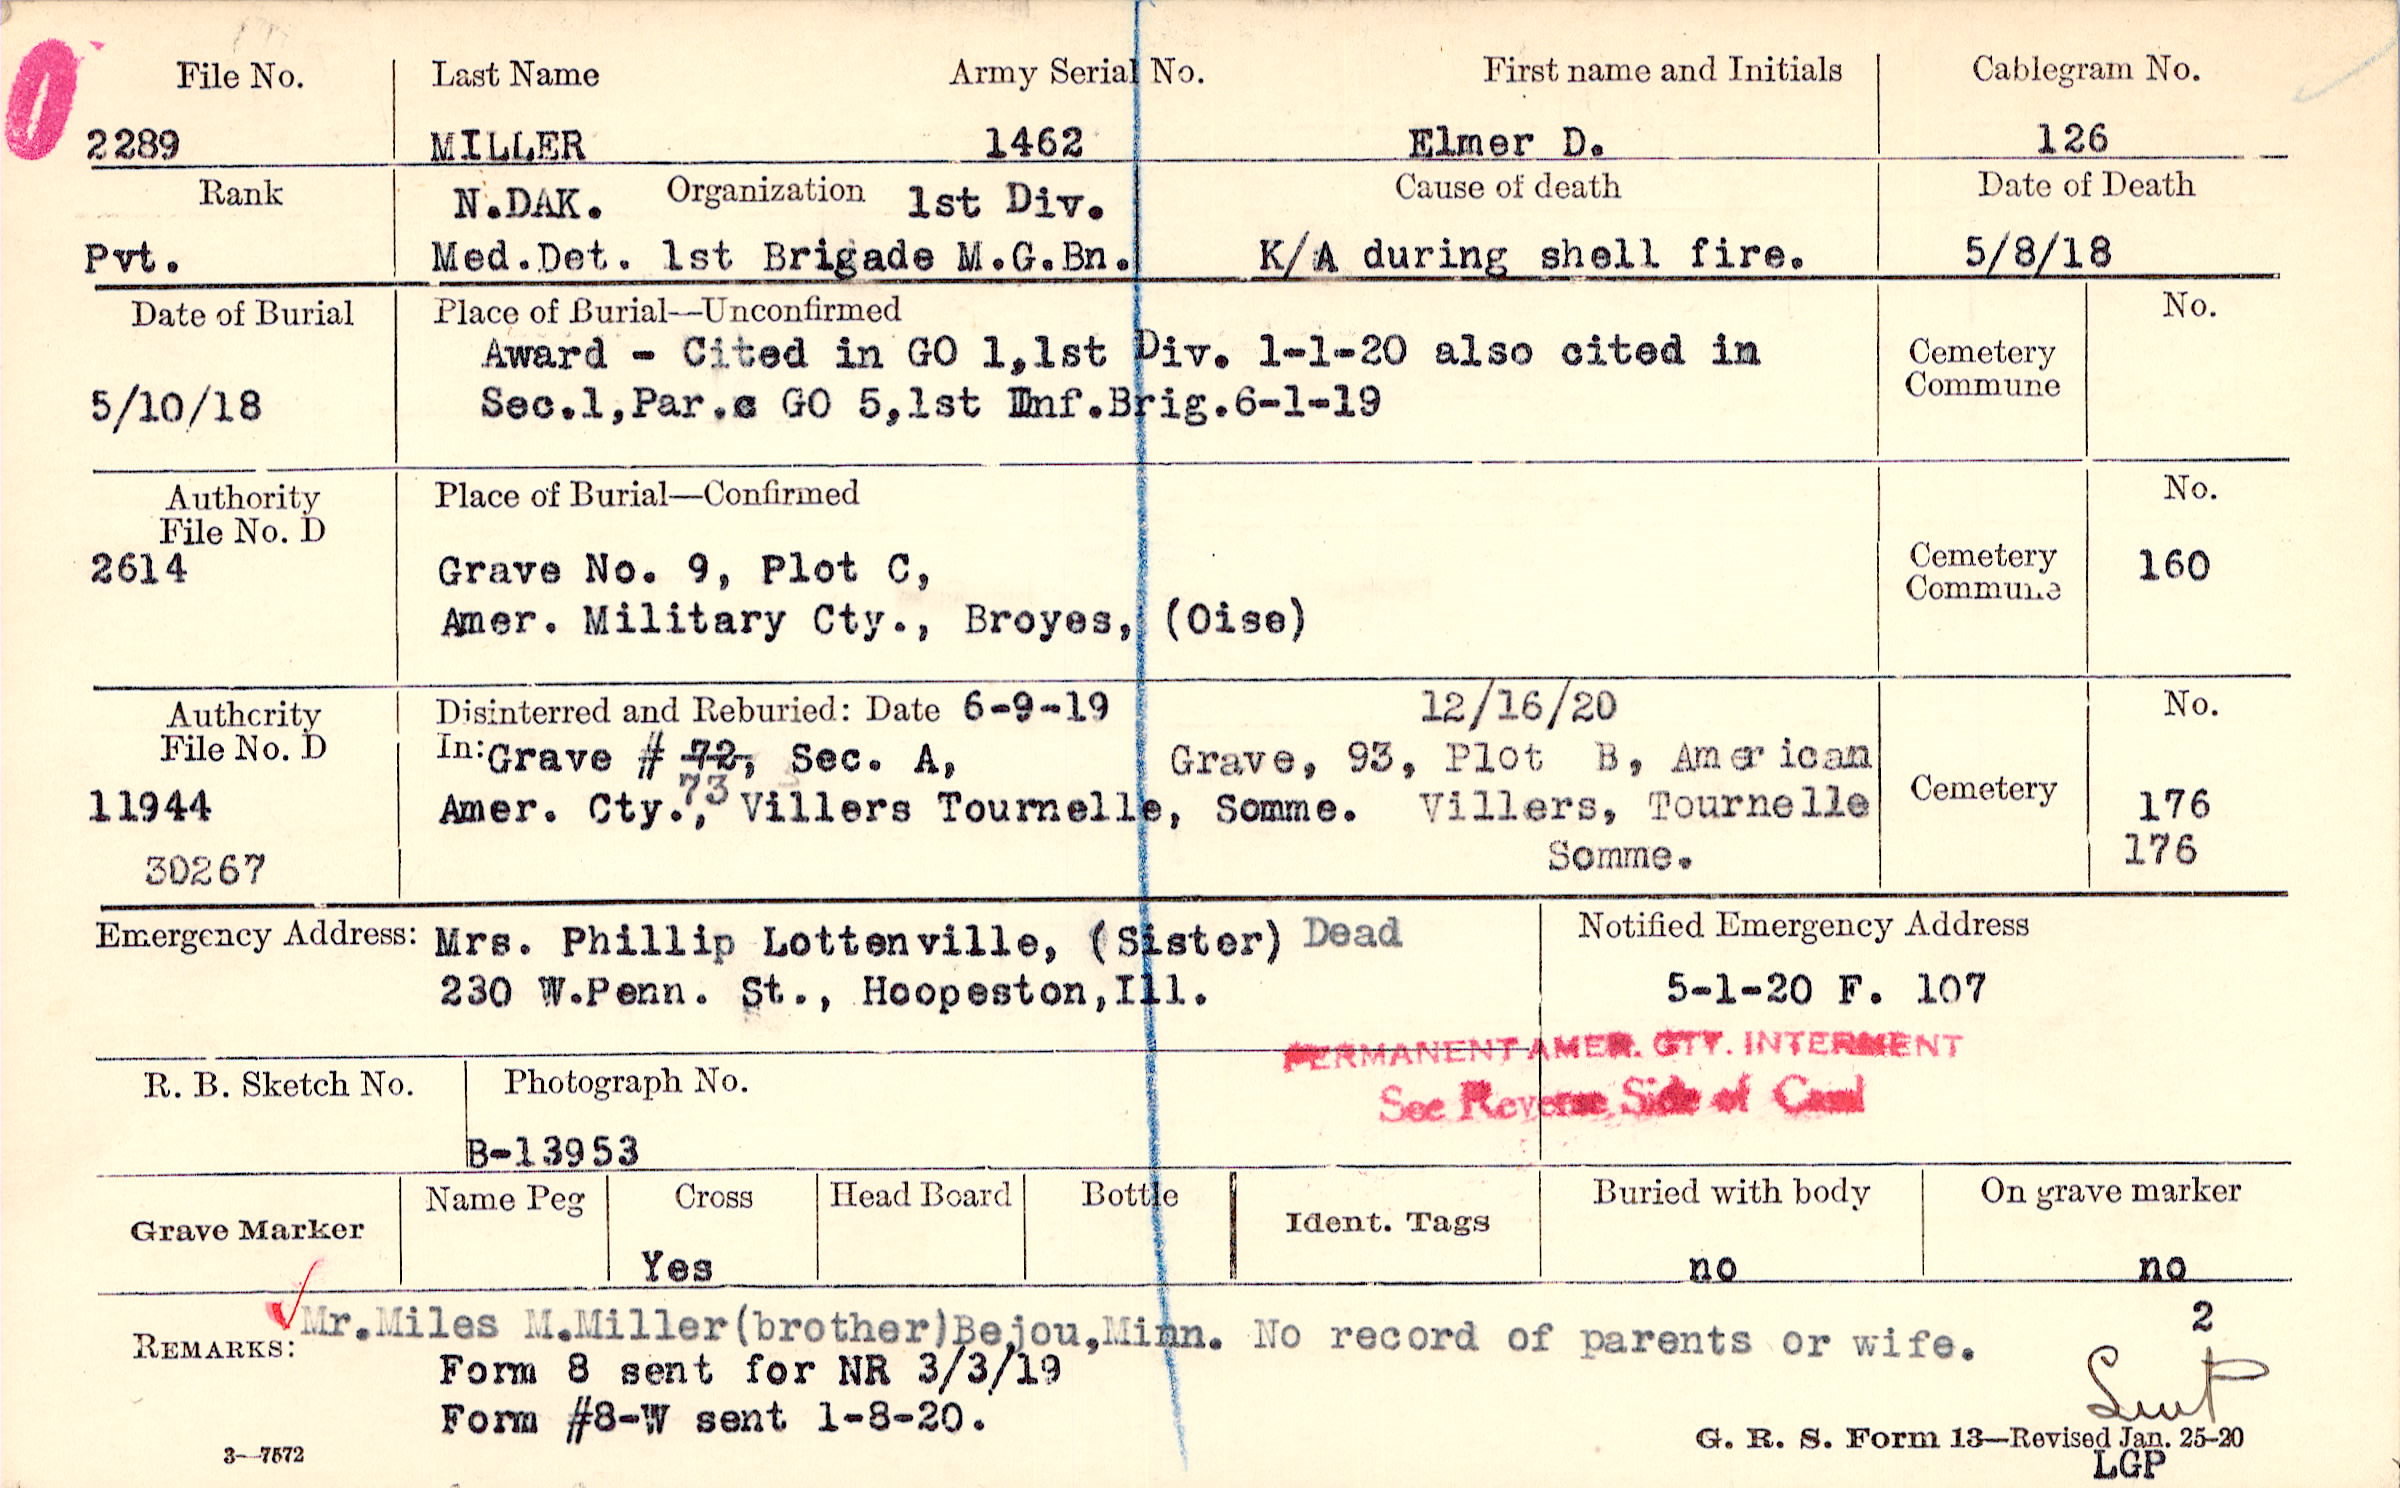 File No. Last Name Army Serial No. First name and Initials Cablegram No.
2289 MILLER 1462 Elmer D. 126
Rank N.DAK. Organization 1st Div. Cause of death Date of Death
Pvt. Med.Det. 1st Brigade M.G.Bn. K/A during shell fire. 5/8/18
Date of Burial Place of Burial—Unconfirmed No.
Award - Cited in GO 1,1st Div. 1-1-20 also cited in Cemetery
5/10/18 Sec.1,Par.c GO 5,1st Inf.Brig.6-1-19 Commune
Authority Place of Burial—Confirmed No.
File No. D
2614 Grave No. 9, Plot C, Cemetery 160
Commune
Amer. Military Cty., Broyes, (Oise)
Authority Disinterred and Reburied: Date 6-9-19 12/16/20 No.
File No. D In: Grave # 72, Sec. A, Grave, 93, Plot B, American
73
11944 Amer. Cty., Villers Tournelle, Somme. Villers, Tournelle Cemetery 176
30267 Somme. 176
Emergency Address: Mrs. Phillip Lottenville, (Sister) Dead Notified Emergency Address
230 W.Penn. St., Hoopeston,Ill. 5-1-20 F. 107
PERMANENT AMER. CTY. INTERMENT
See Reverse Side of Card
R. B. Sketch No. Photograph No.
B-13953
Grave Marker Name Peg Cross Head Board Bottle Ident. Tags Buried with body On grave marker
Yes no no
2
REMARKS: Mr.Miles M.Miller(brother)Bejou,Minn. No record of parents or wife.
Form 8 sent for NR 3/3/19
Form #8-W sent 1-8-20.
G. R. S. Form 13—Revised Jan. 25-20
3—7572 LGP